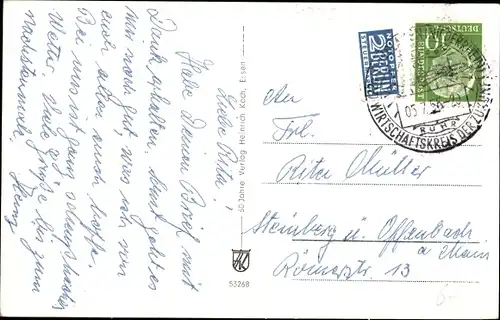 Liebe Rita!
Habe Deinen Brief mit
Dank erhalten. Sonst geht es
mir noch gut, was ich von
euch allen auch hoffe.
Bei uns ist ganz
Wetter.
Grüße bis zum
nächstenmal.
50 Jahre Verlag Heinrich Koch, Essen
HK
53268
NOTOPFER
2 BERLIN
STEUERMARKE
DEUTSCHE
10
WIRTSCHAFTSKREIS DER
RUHR
An
Frl.
Rita Müller
Steinberg ü. Offenbach
a Main
Römerstr. 13